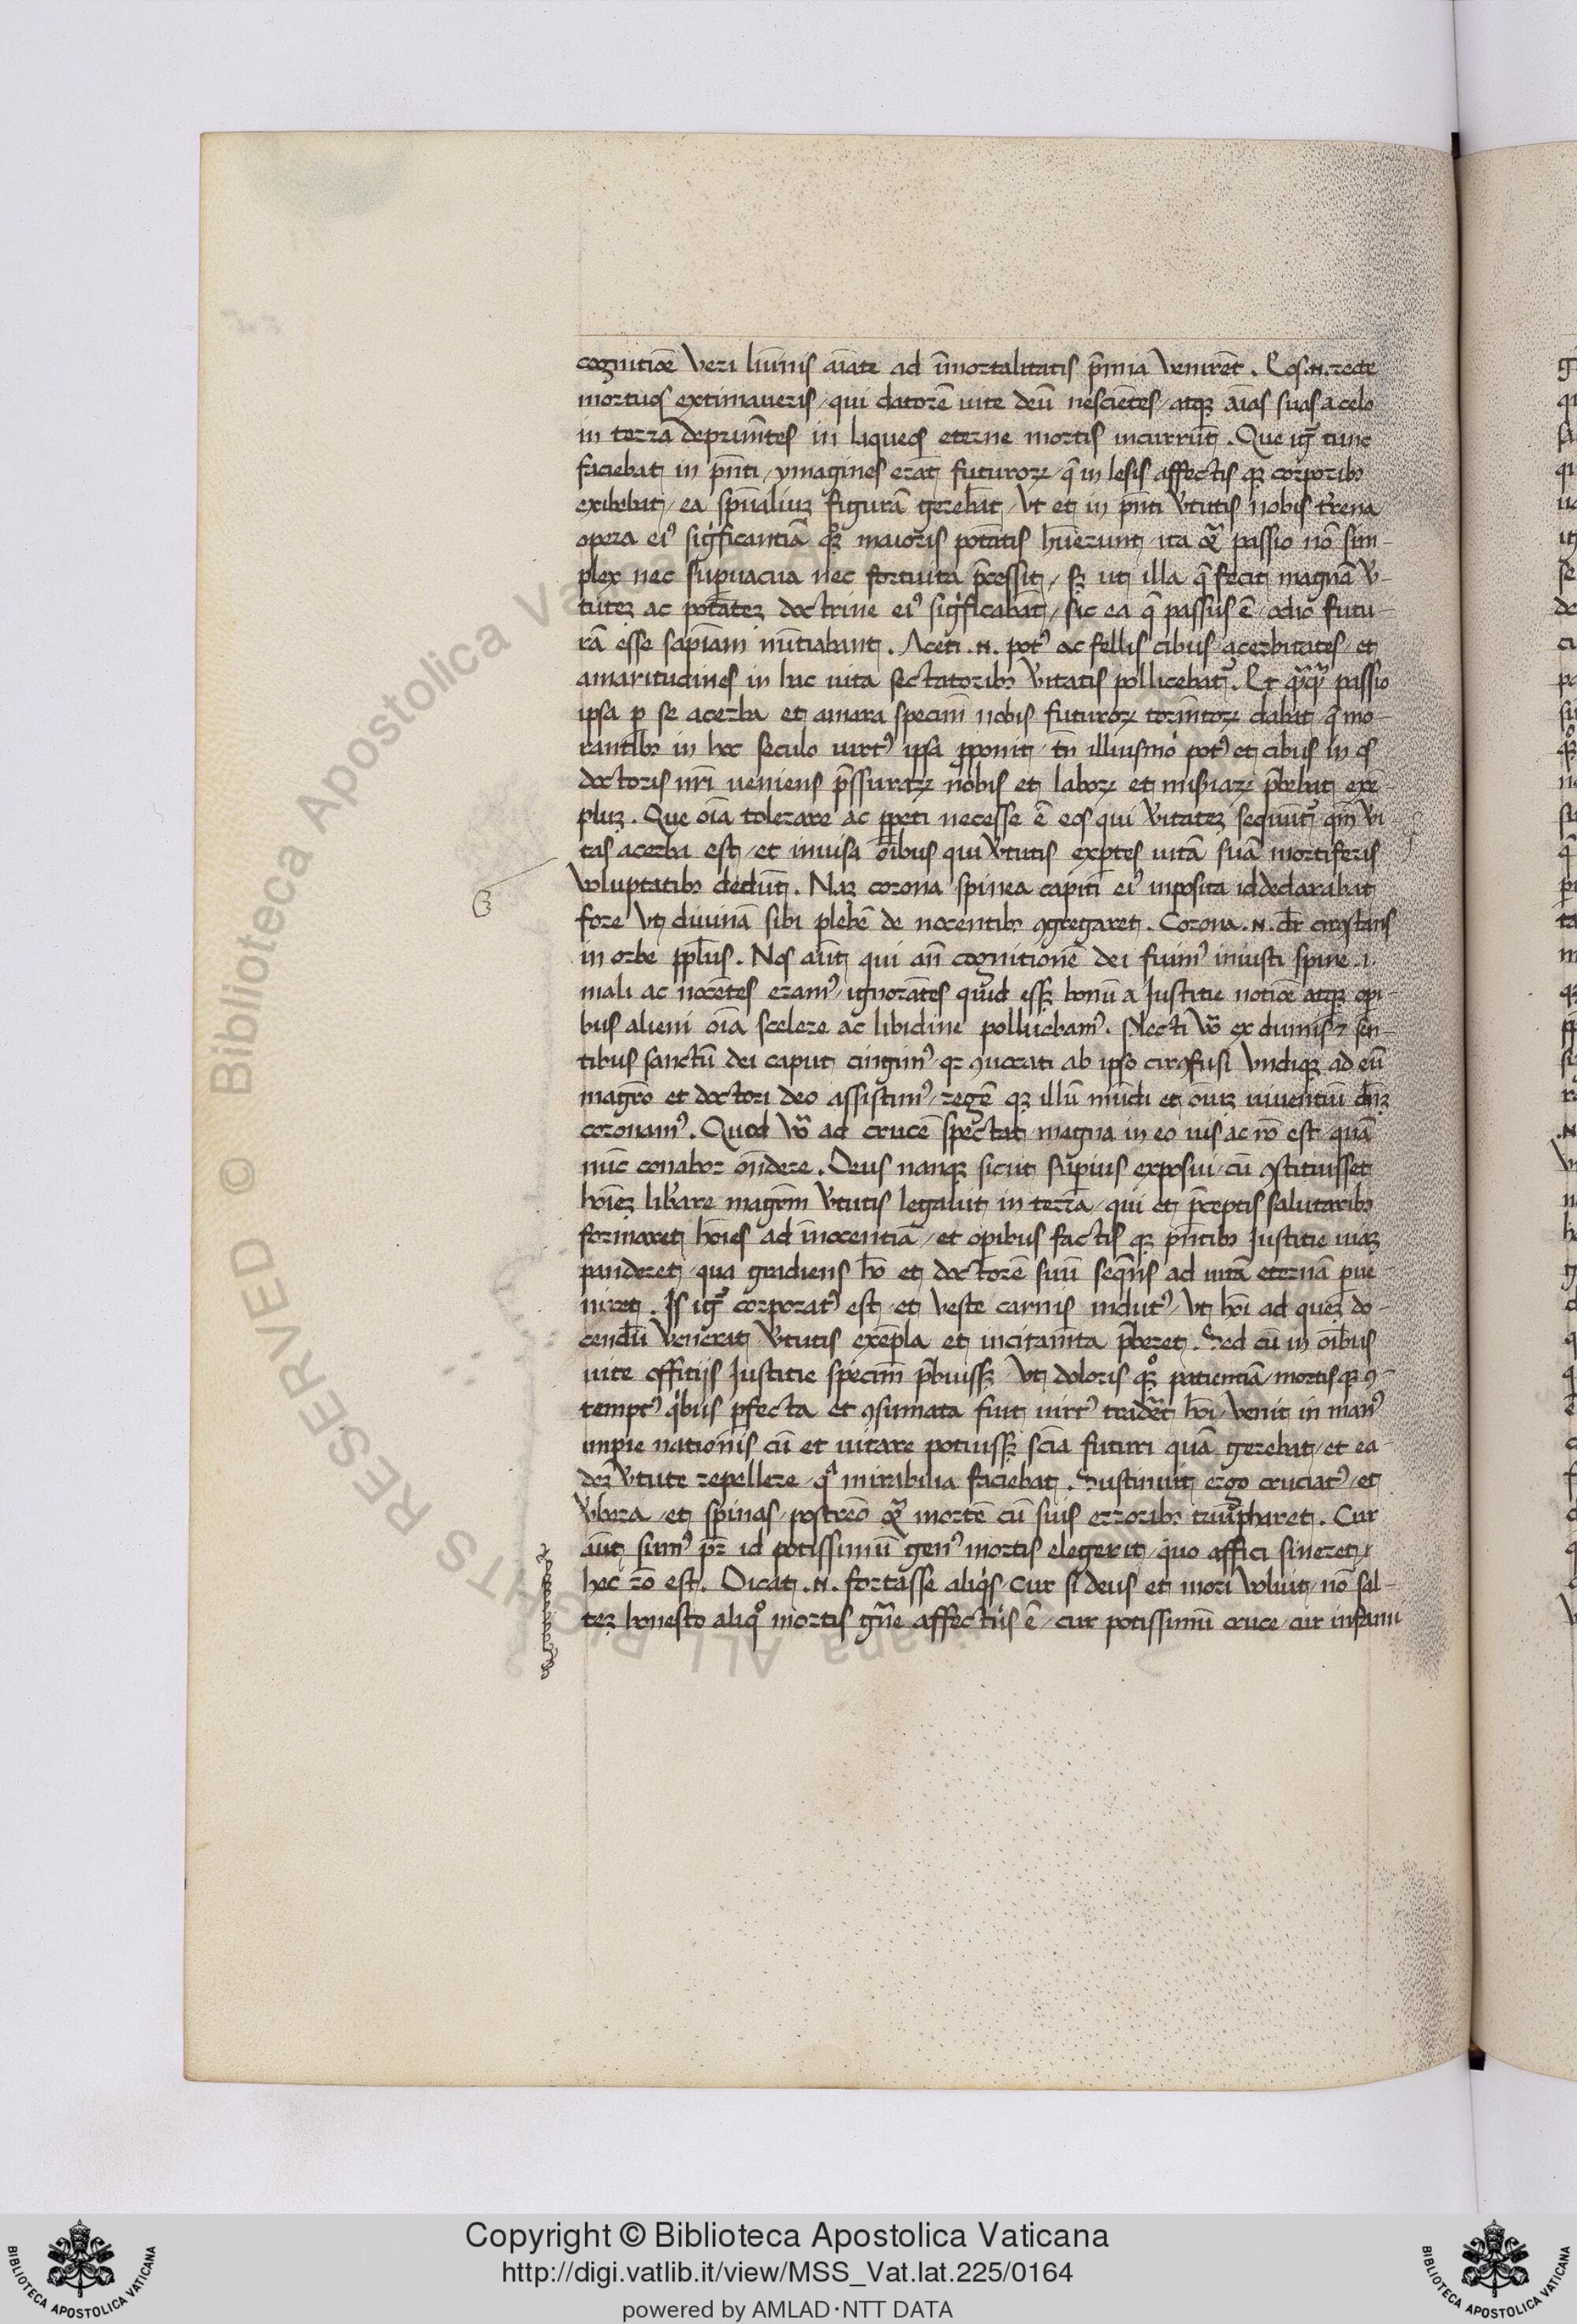 cognitiōe veri lūinis aīate ad īmortalitatis p̄mia venirēt. Eos .n. recte
mortuos extimaveris / qui datorē uite deū nesciētes / atqꝫ aīas suas a celo
in terrā deprim̄tes in laqueos eterne mortis incurrūt. Que igr̄ tunc
faciebat in pn̄ti / ymagines erāt futuroꝝ / q̄ in lesis affectis qꝫ corporibꝰ
exibebat / ea spūaliuꝫ figurā gereb̄at / Vt et in pn̄ti v̄tutis nobis t̄rena
opera eiꝰ sigīficantiā qꝫ maioris potātis hūerunt / ita & passio nō sim-
plex nec supuacua nec fortuita p̄cessit / sꝫ uti illa q̄ fecit magnā v̄-
tuteꝫ ac potāteꝫ doctrine eiꝰ sigīficabāt / sic ea q̄ passus ē / odio futu-
rā esse sapīam nūtiabant. Aceti .n. potꝰ ac fellis cibus / acerbitates / et
amaritudines in hac uita sectatoribꝰ v̄itatis pollicebat᷑. Et qꝫqꝫ passio
ipsa p se acerba et amara specim̄ nobis futuroꝝ torm̄toꝝ dabat / q̄ mo-
rantibꝰ in hoc seculo uirtꝰ ipsa p̱ponit / tn̄ illiusmōi potꝰ et cibus in os
doctoris nr̄i ueniens p̄ssuraꝝ nobis et laboꝝ et mis̄iaꝝ p̄bebat exē-
pluꝫ. Que oīa tolerare ac ꝑpeti necesse ē eos qui v̄itateꝫ sequūt᷑ qm̄ v̄i-
tas acerba est / et inuisa oībus qui v̄tutis exptes uitā suā mortiferis
voluptatibꝰ dedūt. Naꝫ corona spinea capiti eiꝰ inposita id declarabat
fore vt diuinā sibi plebē de nocentibꝰ ꝯgregaret. Corona .n. dr̄ circūstans
in orbe ppl̄us. Nos aūt qui an̄ cognitionē dei fuimꝰ iniusti spine .i.
mali ac nocētes eramꝰ / ignorātes quid essꝫ bonū a Justitie notiōe atqꝫ opi-
bus alieni oīa scelere ac libidine polluebamꝰ. Electi v̄o ex dumis ⁊ sen-
tibus sanctū dei caput cingimꝰ qꝛ ꝯuocati ab ipso circūfusi vndiqꝫ ad eū
magrō et doctori deo assistimꝰ / regē qꝫ illū mūdi et oīuꝫ uiuentiū dn̄ꝫ
coronamꝰ. Quod v̄o ad crucē spectat magna in eo uis ac rō est / quā
nūc conabor ōndere. Deus nanqꝫ sicut supius exposui / cū ꝯstituisset
hoīeꝫ lib̄are magrm̄ v̄tutis legauit in terrā / qui et p̄ceptis salutaribꝰ
formaret hoīes ad īnocentiā / et opibus factis qꝫ pn̄tibꝰ Justitie uiaꝫ
panderet / qua gradiens hō et doctorē suū seqn̄s ad uitā eternā pue-
niret. Is igr̄ corporatꝰ est / et veste carnis indutꝰ / vt hoī ad queꝫ do-
cendū venerat v̄tutis exēpla et incitam̄ta p̄beret. Sed cū in oībus
uite offitijs Justitie specim̄ p̄buissꝫ / vt doloris qꝫ patientiā / mortis qꝫ ꝯ-
temptꝰ qibus pfecta et ꝯsumata fuit uirtꝰ trad̄et hoī / venit in manꝰ
impie nationis cū et uitare potuissꝫ scīa futuri quā gerebat / et ea-
deꝫ v̄tute repellere / qª mirabilia faciebat. Sustinuit ergo cruciatꝰ / et
v̄bera / et spinas / postremo & mortē cū suis erroribꝰ triūpharet. Cur
aūt sumꝰ pr̄ id potissimū genꝰ mortis elegerit / quo affici sineret /
hec rō est. Dicat .n. fortasse aliqis / cur si deus et mori voluit / nō sal-
teꝫ honesto aliqº mortis gn̄e affectus ē / cur potissimū cruce / cur infami
Copyright © Biblioteca Apostolica Vaticana
http://digi.vatlib.it/view/MSS_Vat.lat.225/0164
powered by AMLAD·NTT DATA